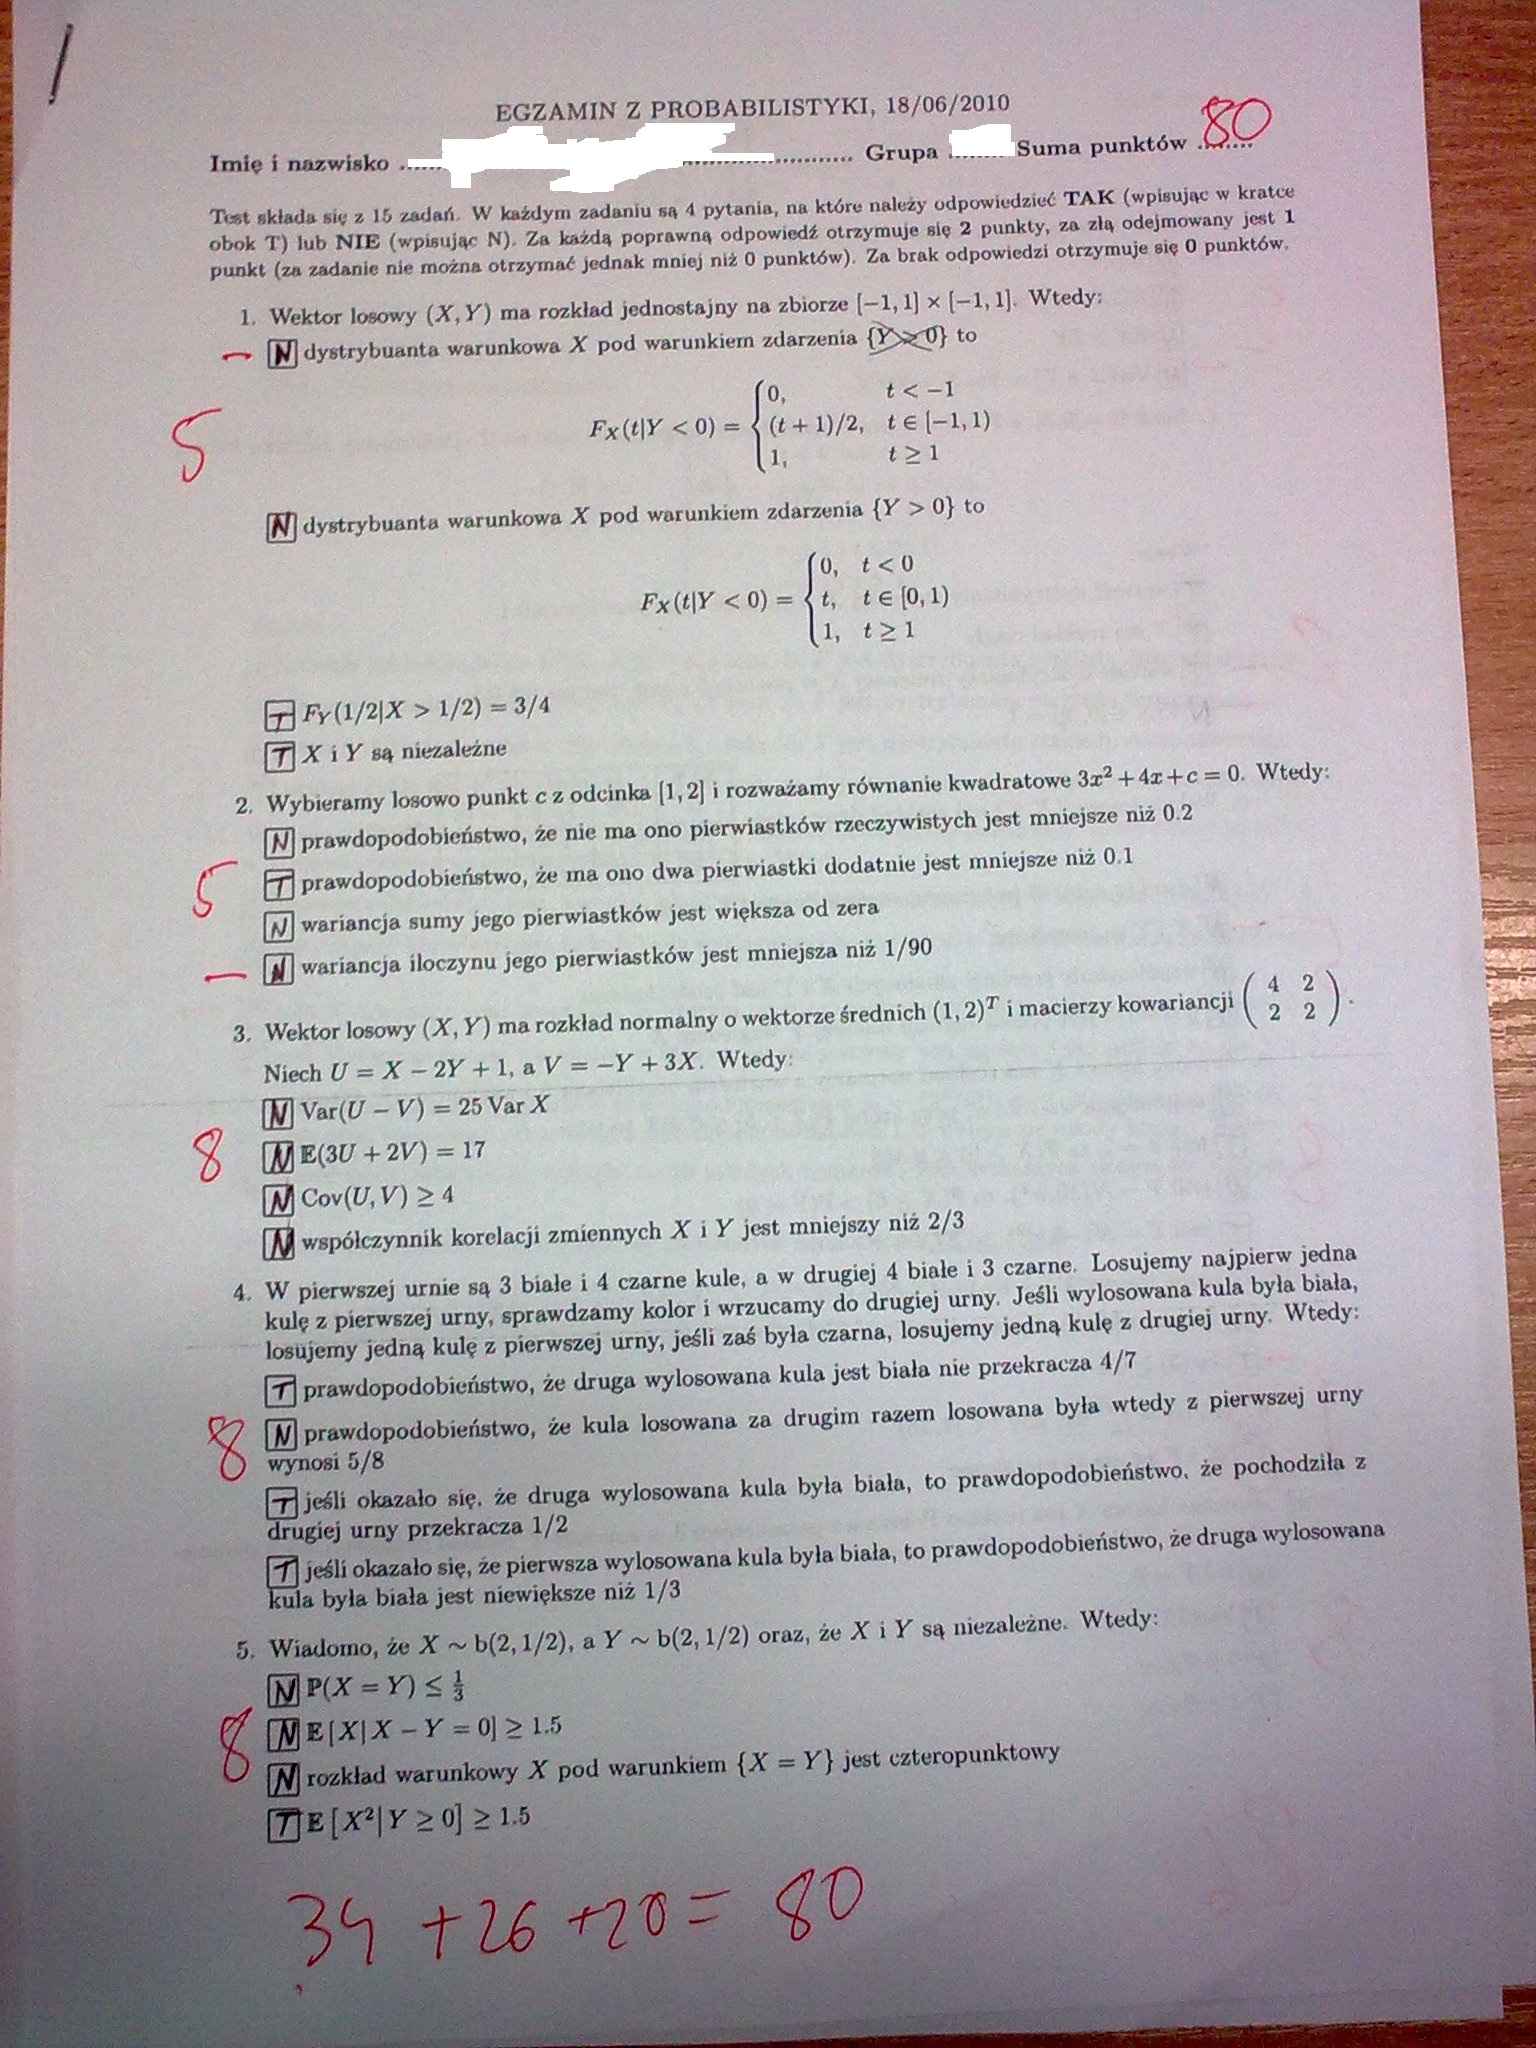 EGZAMIN Z PROBABILISTYKI, 18/06/2010
80
Imię i nazwisko ...... ............ Grupa ...... Suma punktów ........
Test składa się z 15 zadań. W każdym zadaniu są 4 pytania, na które należy odpowiedzieć TAK (wpisując w kratce
obok T) lub NIE (wpisując N). Za każdą poprawną odpowiedź otrzymuje się 2 punkty, za złą odejmowany jest 1
punkt (za zadanie nie można otrzymać jednak mniej niż 0 punktów). Za brak odpowiedzi otrzymuje się 0 punktów.
1. Wektor losowy (X, Y) ma rozkład jednostajny na zbiorze [−1, 1] × [−1, 1]. Wtedy:
− N dystrybuanta warunkowa X pod warunkiem zdarzenia {Y > 0} to
0, t < −1
5 F_X(t|Y < 0) = { (t + 1)/2, t ∈ [−1, 1)
1, t ≥ 1
N dystrybuanta warunkowa X pod warunkiem zdarzenia {Y > 0} to
0, t < 0
F_X(t|Y < 0) = { t, t ∈ [0, 1)
1, t ≥ 1
T F_Y(1/2|X > 1/2) = 3/4
T X i Y są niezależne
2. Wybieramy losowo punkt c z odcinka [1, 2] i rozważamy równanie kwadratowe 3x² + 4x + c = 0. Wtedy:
N prawdopodobieństwo, że nie ma ono pierwiastków rzeczywistych jest mniejsze niż 0.2
5 T prawdopodobieństwo, że ma ono dwa pierwiastki dodatnie jest mniejsze niż 0.1
N wariancja sumy jego pierwiastków jest większa od zera
− N wariancja iloczynu jego pierwiastków jest mniejsza niż 1/90
3. Wektor losowy (X, Y) ma rozkład normalny o wektorze średnich (1, 2)ᵀ i macierzy kowariancji ( 4 2
2 2 ).
Niech U = X − 2Y + 1, a V = −Y + 3X. Wtedy:
N Var(U − V) = 25 Var X
8 N 𝔼(3U + 2V) = 17
N Cov(U, V) ≥ 4
N współczynnik korelacji zmiennych X i Y jest mniejszy niż 2/3
4. W pierwszej urnie są 3 białe i 4 czarne kule, a w drugiej 4 białe i 3 czarne. Losujemy najpierw jedna
kulę z pierwszej urny, sprawdzamy kolor i wrzucamy do drugiej urny. Jeśli wylosowana kula była biała,
losujemy jedną kulę z pierwszej urny, jeśli zaś była czarna, losujemy jedną kulę z drugiej urny. Wtedy:
T prawdopodobieństwo, że druga wylosowana kula jest biała nie przekracza 4/7
8 N prawdopodobieństwo, że kula losowana za drugim razem losowana była wtedy z pierwszej urny
wynosi 5/8
T jeśli okazało się, że druga wylosowana kula była biała, to prawdopodobieństwo, że pochodziła z
drugiej urny przekracza 1/2
T jeśli okazało się, że pierwsza wylosowana kula była biała, to prawdopodobieństwo, że druga wylosowana
kula była biała jest niewiększe niż 1/3
5. Wiadomo, że X ~ b(2, 1/2), a Y ~ b(2, 1/2) oraz, że X i Y są niezależne. Wtedy:
N ℙ(X = Y) ≤ 1/3
8 N 𝔼[X|X − Y = 0] ≥ 1.5
N rozkład warunkowy X pod warunkiem {X = Y} jest czteropunktowy
T 𝔼[X²|Y ≥ 0] ≥ 1.5
34 + 26 + 20 = 80